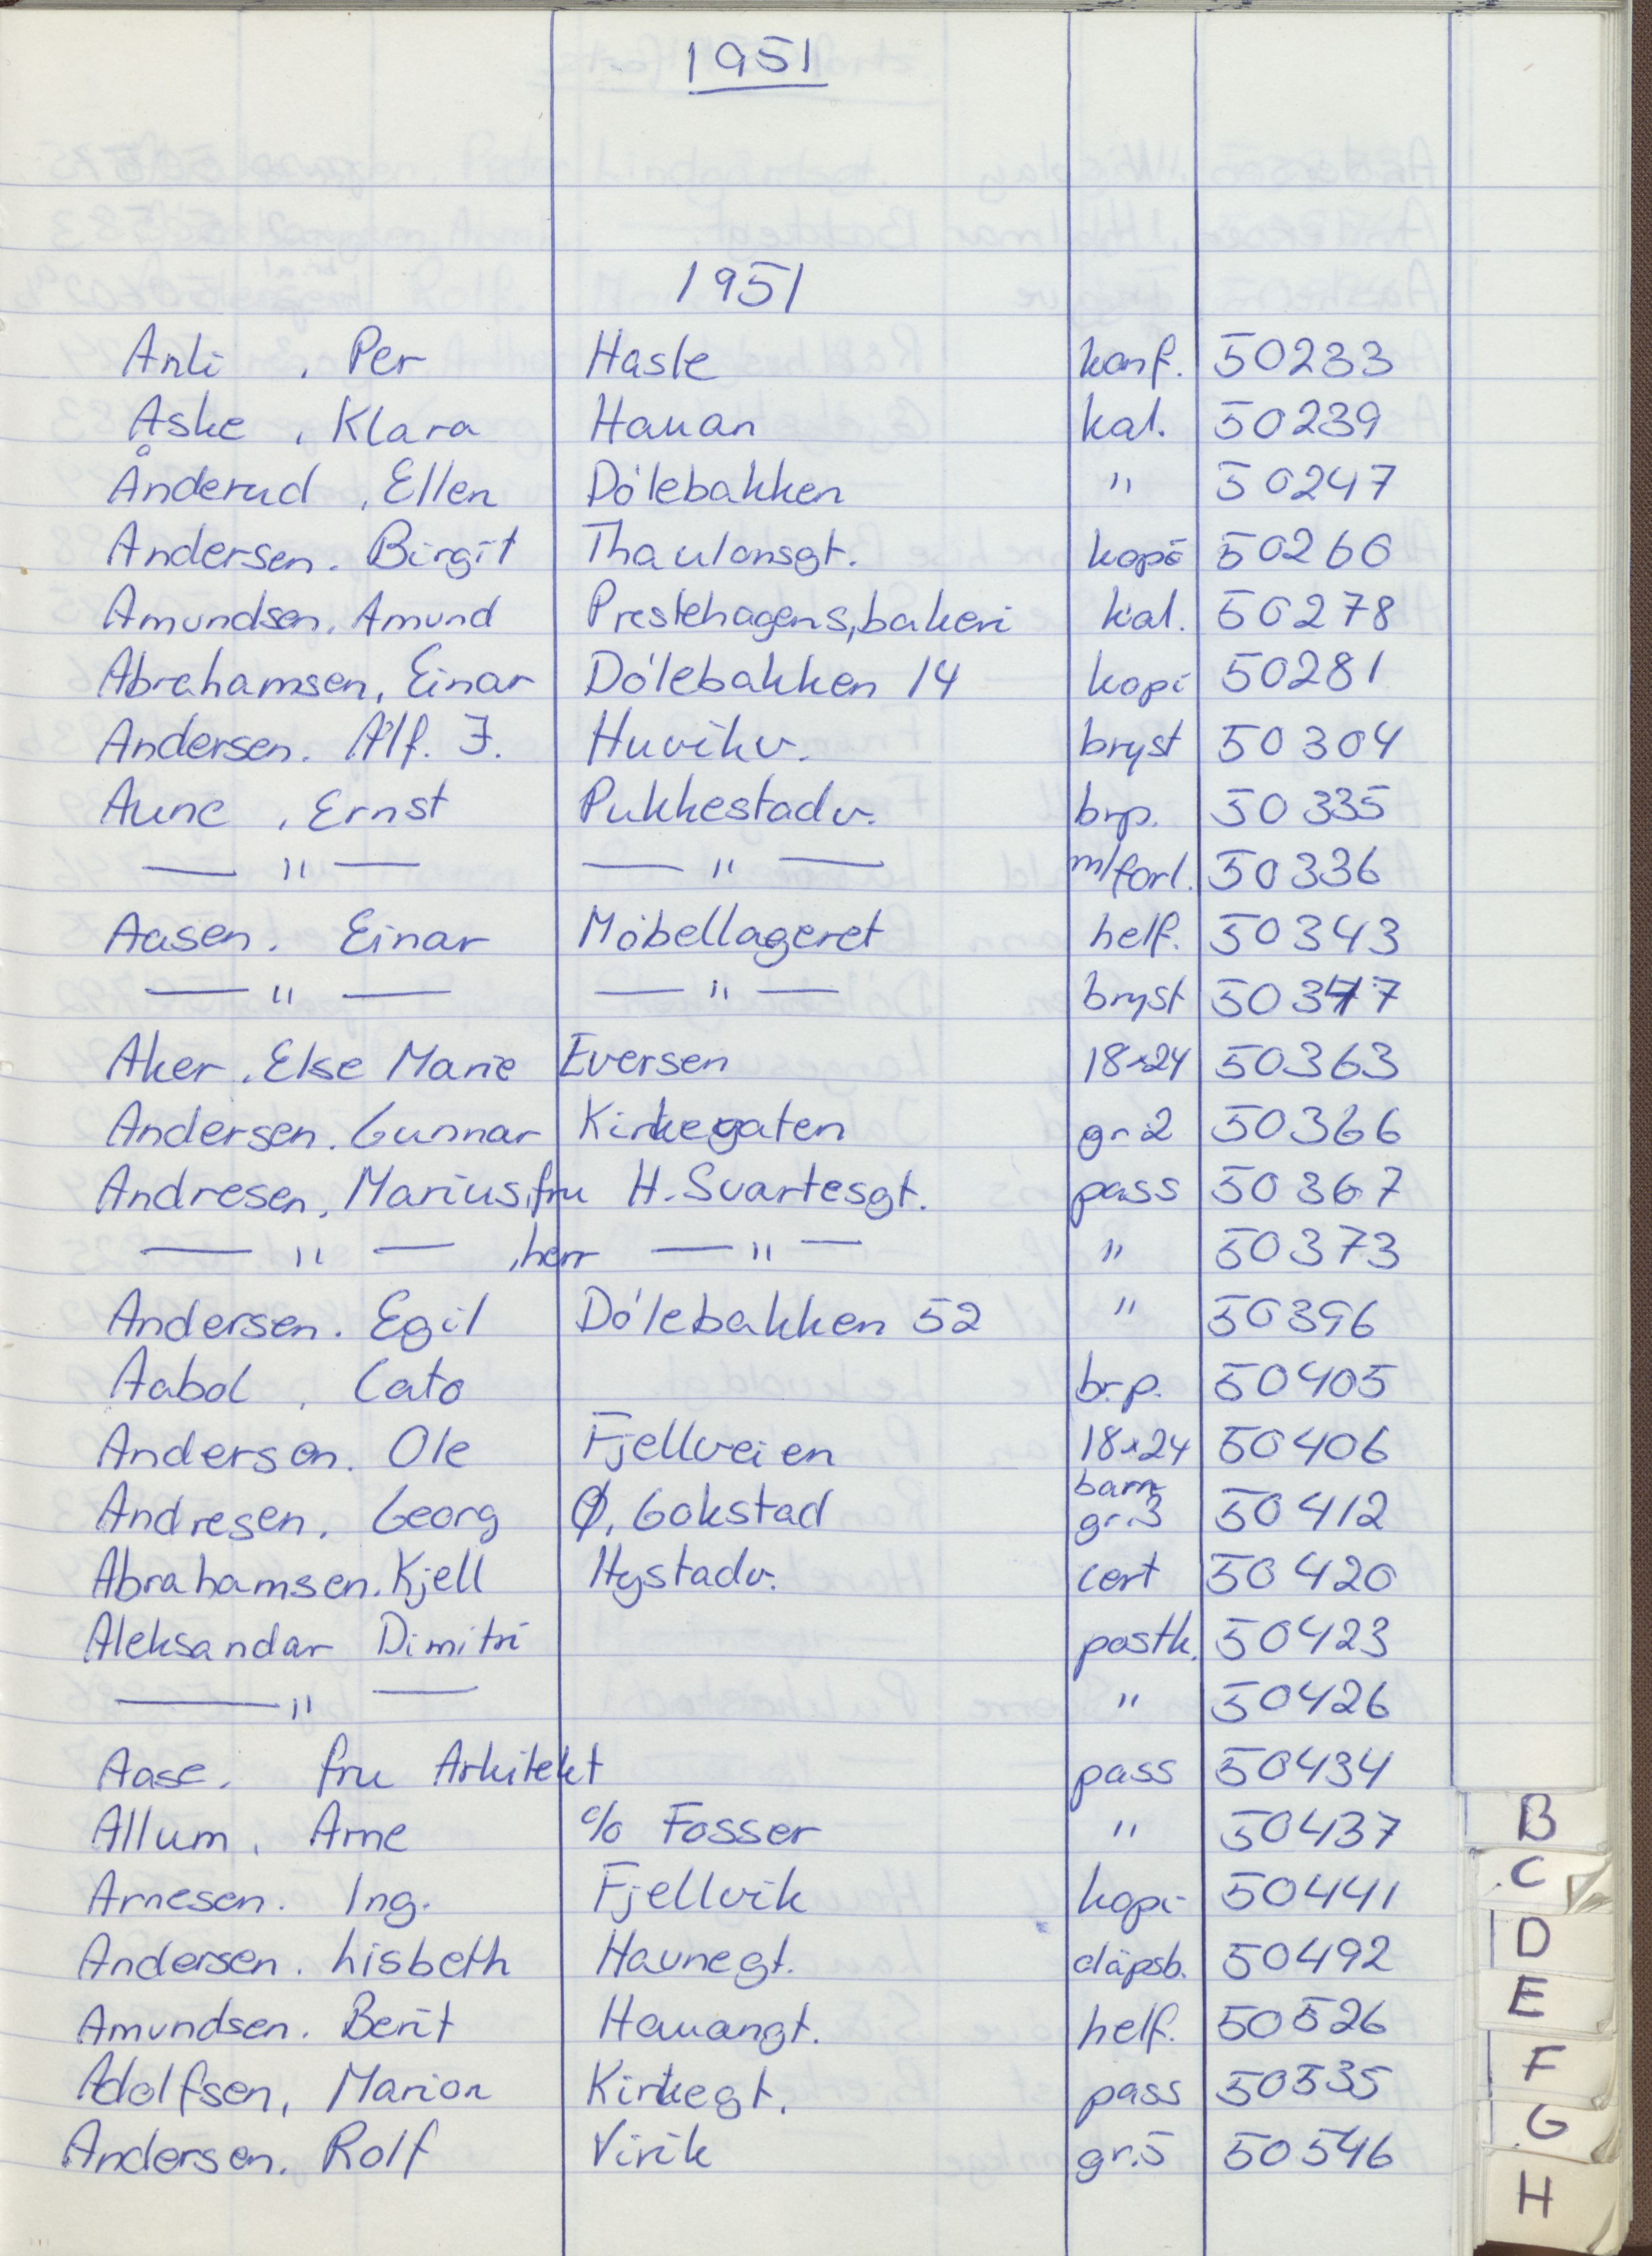 1951
1951
Anli , Per Hasle konf. 50233
Aske , Klara Hauan kal. 50239
Ånderud , Ellen Dölebakken " 50247
Andersen. Birgit Thaulowsgt. kopi 50260
Amundsen, Amund Prestehagens, bakeri kal. 50278
Abrahamsen, Einar Dölebakken 14 kopi 50281
Andersen. Alf. J. Huvikv. bryst 50304
Aune , Ernst Pukkestadv. brp. 50335
— " — — " — m/forl. 50336
Aasen. Einar Möbellageret helf. 50343
— " — — " — bryst 50347
Aker, Else Marie Eversen 18x24 50363
Andersen. Gunnar Kirkegaten gr 2 50366
Andresen, Marius, fru H. Svartesgt. pass 50367
— " — , herr — " — " 50373
Andersen. Egil Dölebakken 52 " 50396
Aabol , Cato br.p. 50405
Andersen. Ole Fjellveien 18x24 50406
Andresen. Georg Ø, Gokstad barn gr.3 50412
Abrahamsen. Kjell Hystadv. cert 50420
Aleksandar Dimitri postk. 50423
— " — " 50426
Aase. fru Arkitekt pass 50434
Allum. Arne c/o Fosser " 50437
Arnesen. Ing. Fjellvik kopi 50441
Andersen. Lisbeth Havnegt. dåpsb. 50492
Amundsen. Berit Hauangt. helf. 50526
Adolfsen, Marion Kirkegt. pass 50535
Andersen. Rolf Virik gr.5 50546
B
C
D
E
F
G
H